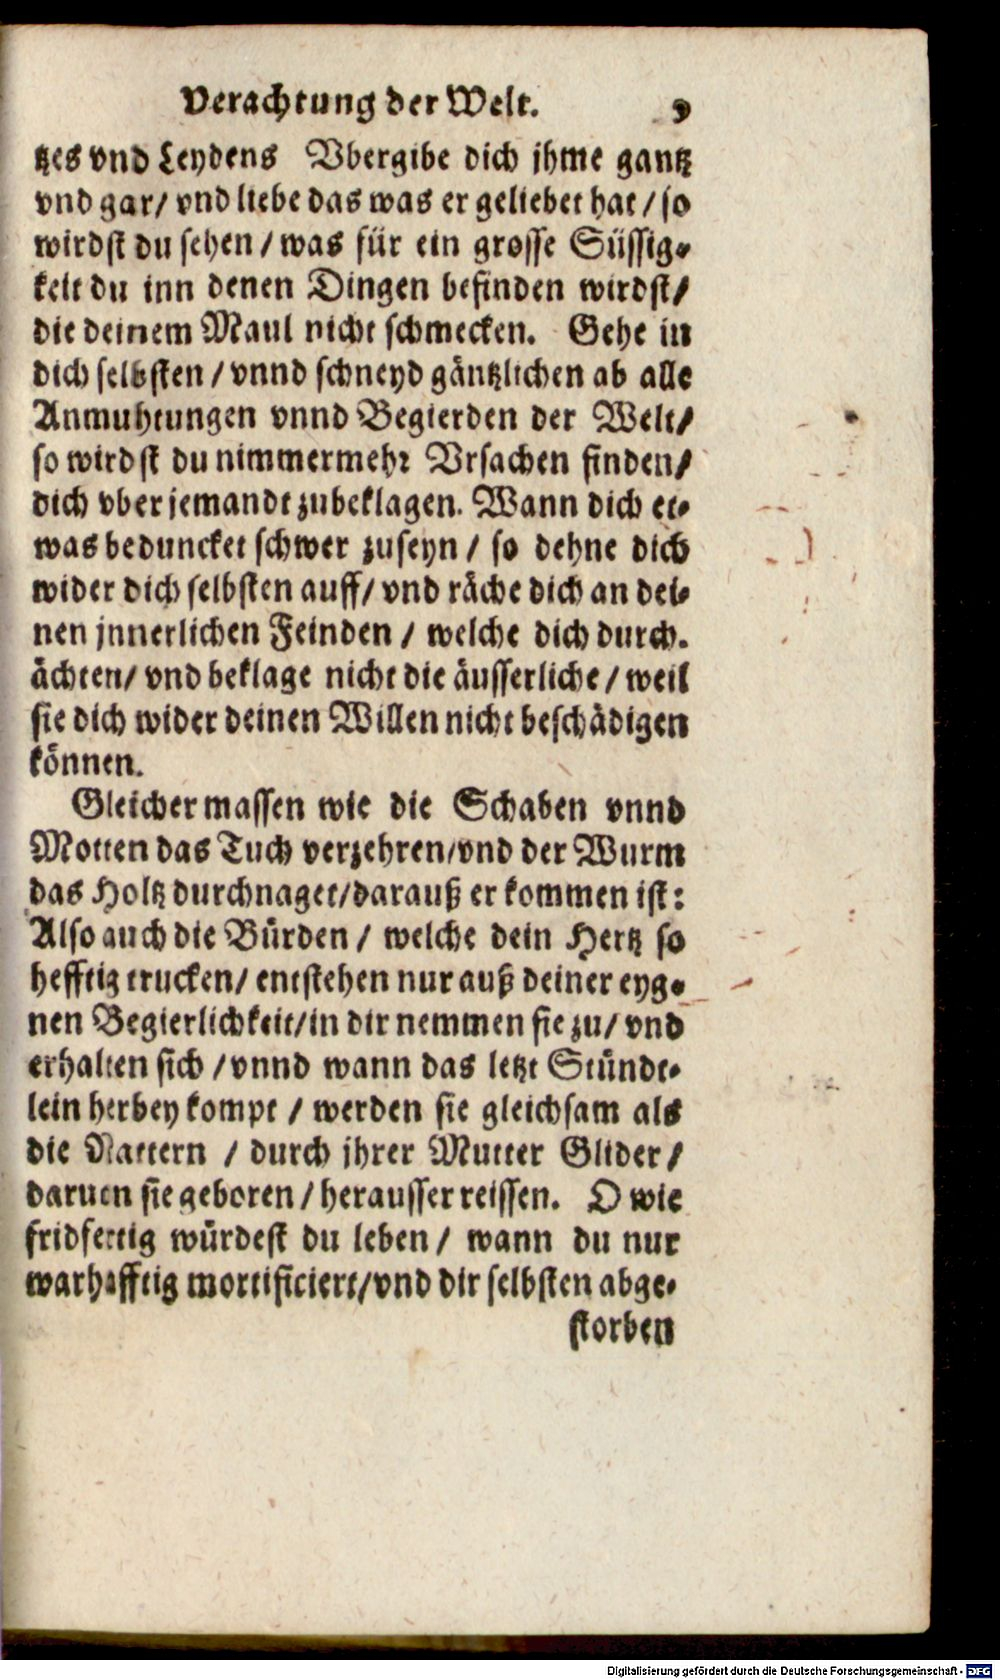 Verachtung der Welt. 9
tzes vnd Leydens Vbergibe dich jhme gantz
vnd gar/ vnd liebe das was er geliebet hat / so
wirdst du sehen / was für ein grosse Süssig-
keit du inn denen Dingen befinden wirdst/
die deinem Maul nicht schmecken. Gehe in
dich selbsten / vnnd schneyd gäntzlichen ab alle
Anmuhtungen vnnd Begierden der Welt/
so wirdst du nimmermehr Vrsachen finden/
dich vber jemandt zubeklagen. Wann dich et-
was beduncket schwer zuseyn / so dehne dich
wider dich selbsten auff/ vnd räche dich an dei-
nen jnnerlichen Feinden / welche dich durch-
ächten/ vnd beklage nicht die äusserliche / weil
sie dich wider deinen Willen nicht beschädigen
können.
Gleicher massen wie die Schaben vnnd
Motten das Tuch verzehren/vnd der Wurm
das Holtz durchnaget/darauß er kommen ist:
Also auch die Bürden / welche dein Hertz so
hefftig trucken/ entstehen nur auß deiner eyg-
nen Begierlichkeit/in dir nemmen sie zu/ vnd
erhalten sich / vnnd wann das letzt Stündt-
lein herbey kompt / werden sie gleichsam als
die Nattern / durch jhrer Mutter Glider/
daruon sie geboren / herausser reissen. O wie
fridfertig würdest du leben/ wann du nur
warhafftig mortificiert/vnd dir selbsten abge-
storben
Digitalisierung gefördert durch die Deutsche Forschungsgemeinschaft - DFG